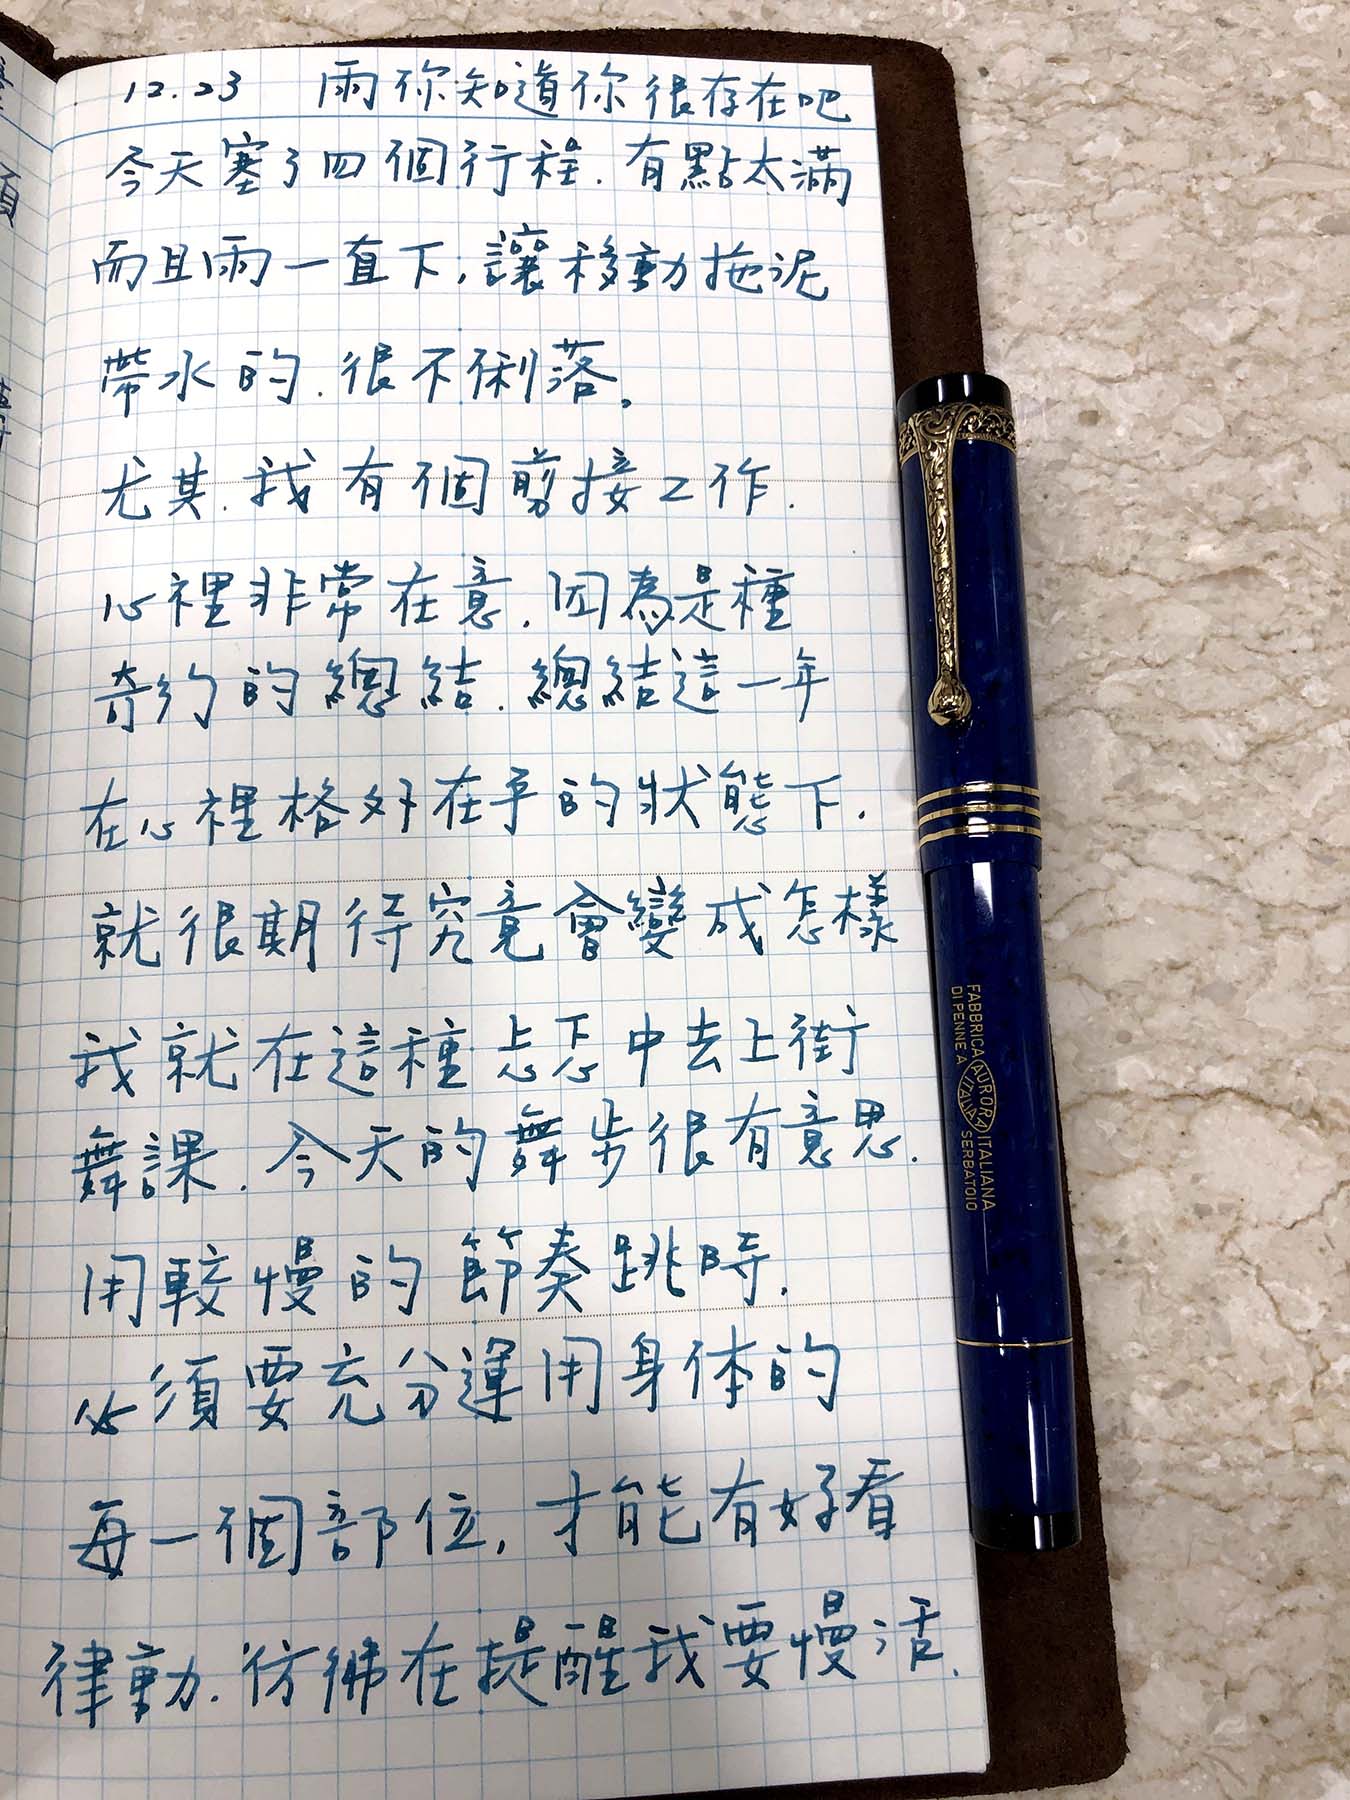 12.23 雨你知道你很存在吧
今天塞了四個行程.有點太滿
而且雨一直下,讓移動拖泥
帶水的.很不俐落。
尤其.我有個剪接工作.
心裡非常在意.因為是種
奇約的總結.總結這一年
在心裡格外在乎的狀態下.
就很期待究竟會變成怎樣
我就在這種忐忑中去上街
舞課.今天的舞步很有意思.
用較慢的節奏跳時.
必須要充分運用身体的
每一個部位,才能有好看
律動.彷彿在提醒我要慢活.
FABBRICA AURORA ITALIANA
DI PENNE A ITALIA SERBATOIO